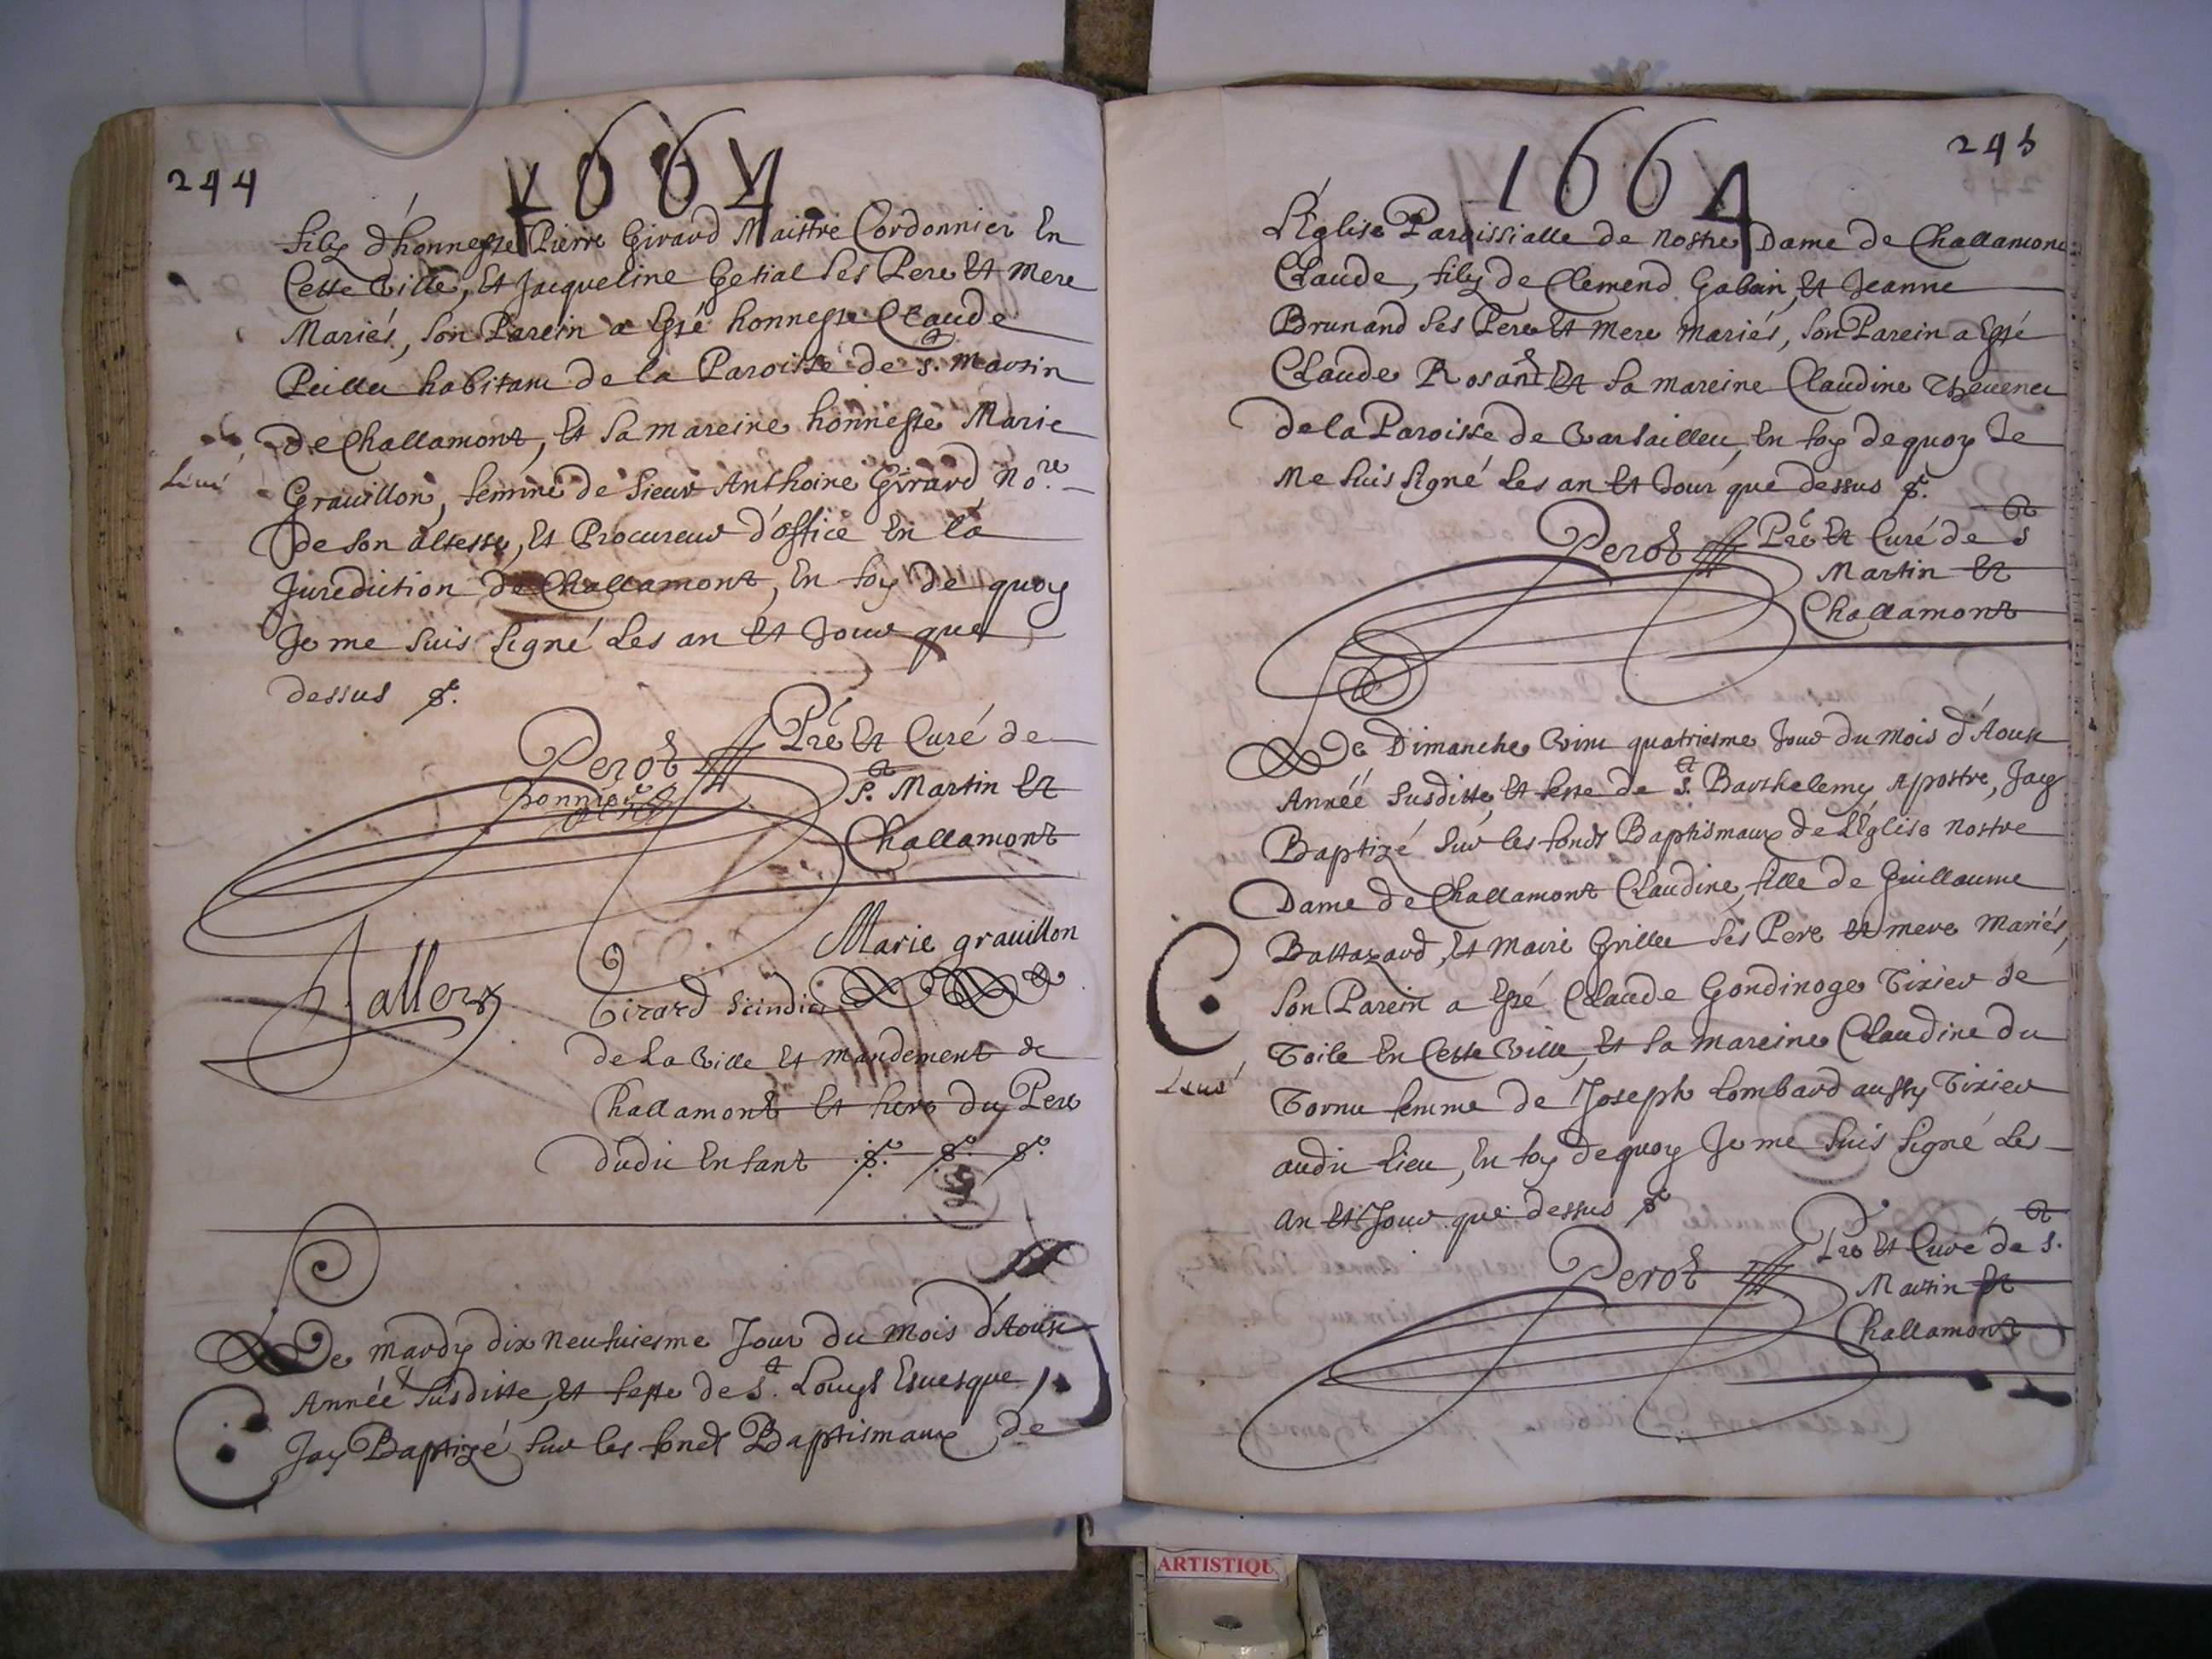 244
1664
filz d'honneste Pierre Girard Maistre Cordonnier En
Cette Ville, Et Jacqueline Getial ses Pere Et Mere
Mariés, son Parein a Esté honneste Claude
Peillet habitant de la Paroisse de St. Martin
de Challamont, Et sa mareine honneste Marie
Livré
Grauillon, femme de sieur Anthoine Girard, No.re
de son altesse, Et Procureur d'office En la
Juridiction de Challamont, En foy de quoy
Je me suis signé Les an Et Jour que
dessus
Perot Pre Et Curé de
St. Martin Et
Challamont
Marie grauillon
Girard scindic
de La Ville Et mandement de
Challamont Et frere du Pere
dudit Enfant
Le mardy dix neufuiesme Jour du mois d'Aoust
Année susditte, Et feste de St. Louys Euesque,
Jay Baptizé sur les fonds Baptismaux de
245
1664
L'Église Paroissialle de Nostre Dame de Challamont
Claude, filz de Clemend Gabain, Et Jeanne
Brunand ses Pere Et Mere mariés, son Parein a Esté
Claude Rosand Et sa mareine Claudine Theuenet
de la Paroisse de Varsailleu, En foy de quoy Je
Me suis signé Les an Et Jour que dessus
Perot Pre Et Curé de St
Martin Et
Challamont
Le Dimanche Vint quatriesme Jour du mois d'Aoust
Année susditte, Et feste de St. Barthelemy Apostre, Jay
Baptizé sur les fonds Baptismaux de L'Église Nostre
Dame de Challamont Claudine, fille de Guillaume
Baltazard, Et Marie Grillet ses Pere Et mere Mariés,
son Parein a Esté Claude Gondinoge Tixier de
Toile En Cette Ville, Et sa mareine Claudine du
Livré
Tornu femme de Joseph Lombard aussy Tixier
audit Lieu, En foy de quoy Je me suis signé Les
An Et Jour que dessus
Perot Pre Et Curé de St.
Martin Et
Challamont
ARTISTIQU